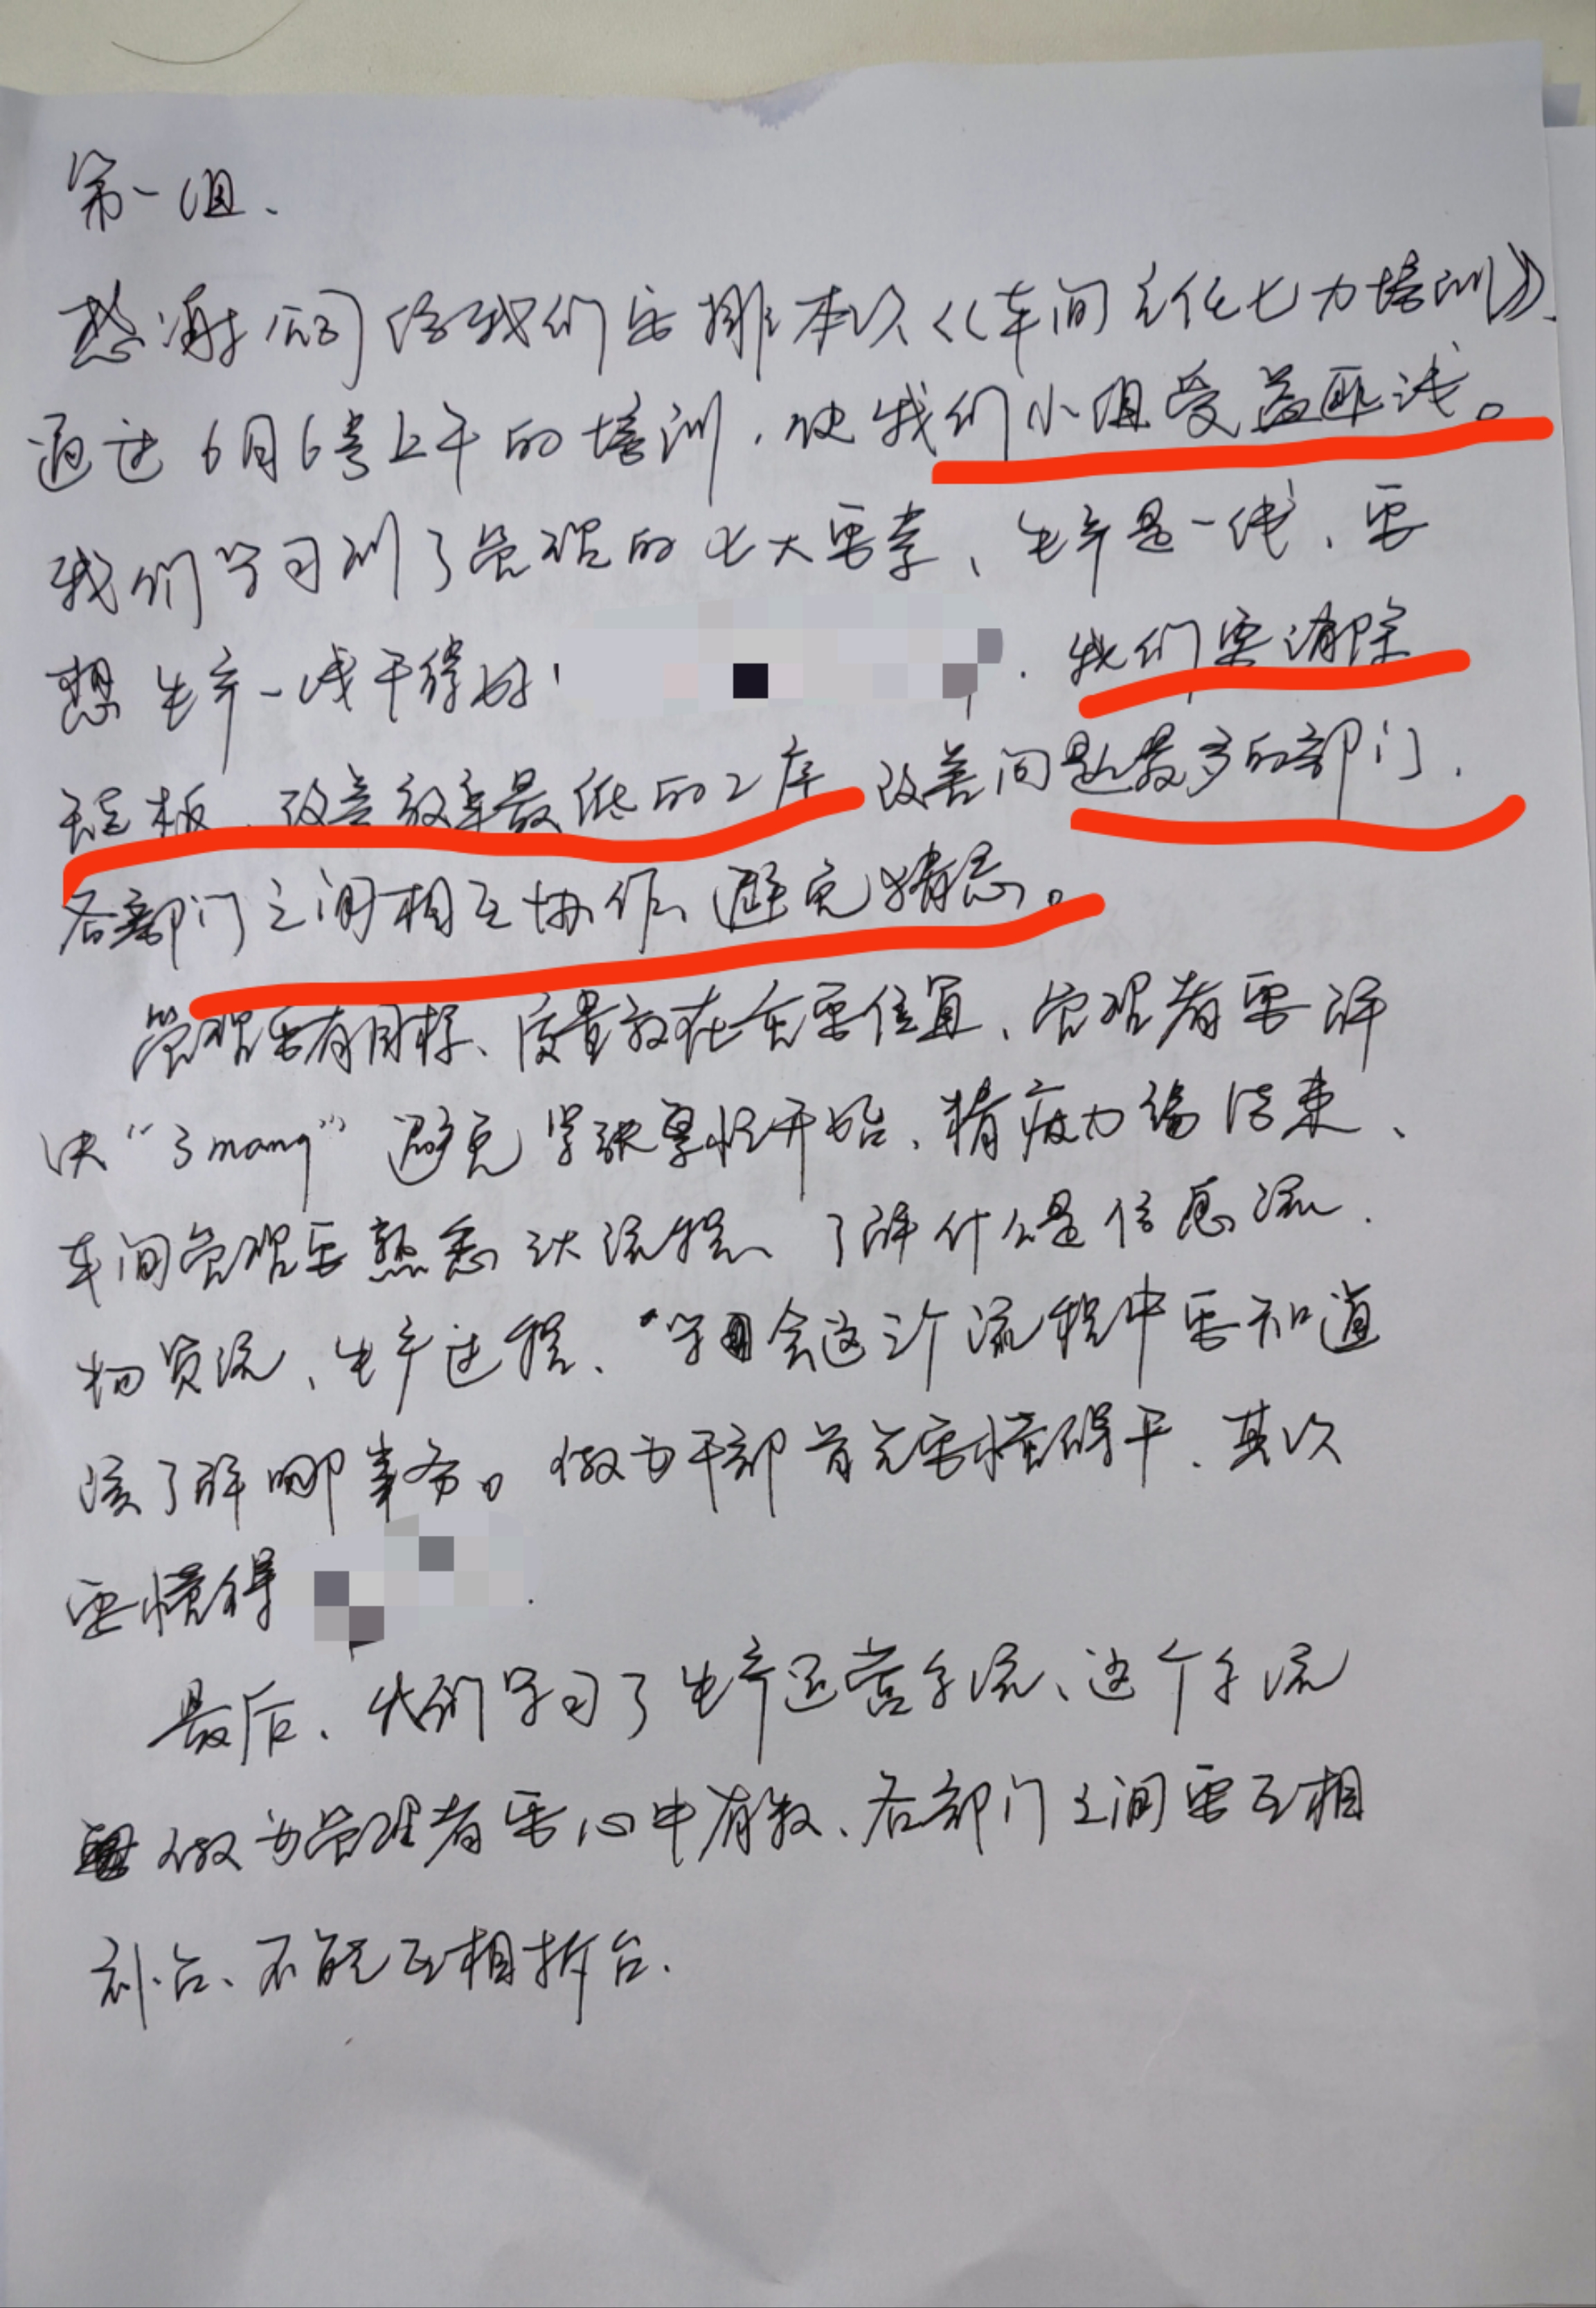 第一组、
感谢公司给我们安排本次《车间主任七力培训》.
通过6月6号上午的培训,使我们小组受益匪浅。
我们学习到了管理的七大要素、生产是一线、要
想生产一线干得好 . 我们要消除
短板、改善效率最低的工序 改善问题最多的部门.
各部门之间相互协作、避免情怠。
管理要有目标、度量放在重要位置、管理者要解
决“3mang”避免紧张 开始、精疲力 结束、
车间管理要熟悉 流程、了解什么是信息流.
物资流、生产过程、学会这三个流程中要知道
该了解哪 事务。做为干部首先要懂得平.其次
要懂得 .
最后、我们学习了生产运营手流、这个手流
做为管理者要心中有数、各部门之间要互相
补台、不能互相拆台.